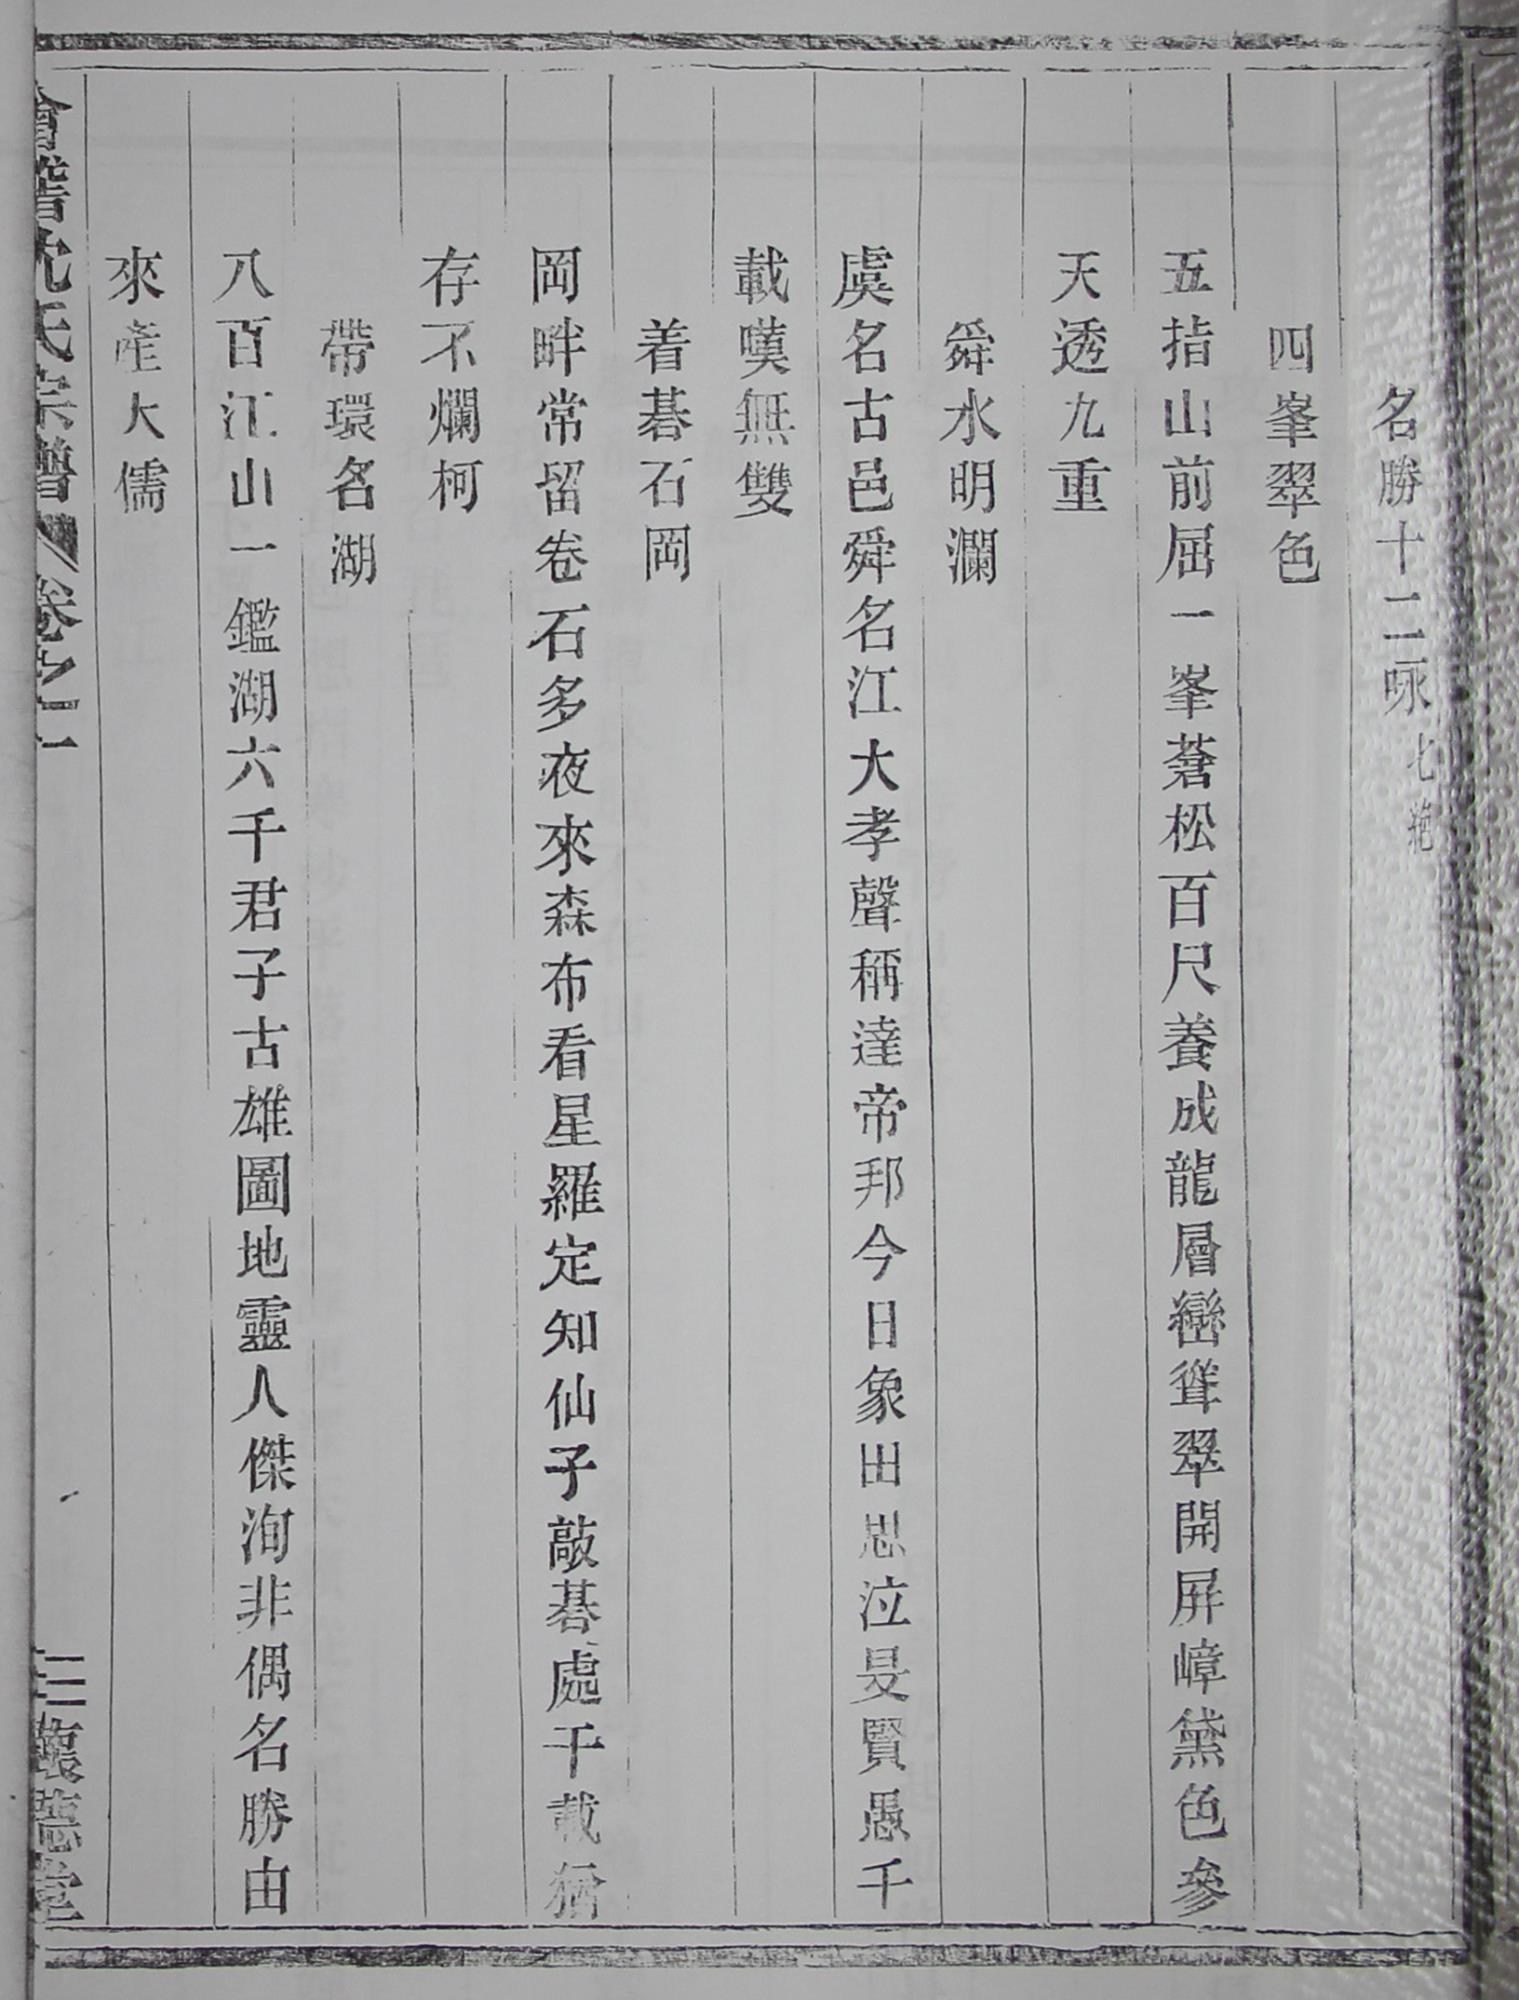 名勝十二咏七絶
四峯翠色
五指山前屈一峯蒼松百尺養成龍層巒聳翠開屏嶂黛色參
天透九重
舜水明瀾
虞名古邑舜名江大孝聲稱達帝邦今日象田思泣旻賢愚千
載嘆無雙
着碁石岡
岡畔常留卷石多夜來森布看星羅定知仙子敲碁處千載猶
存不爛柯
帶環名湖
八百江山一鑑湖六千君子古雄圖地靈人傑洵非偶名勝由
來產大儒
會稽沈氏宗譜 卷之十一